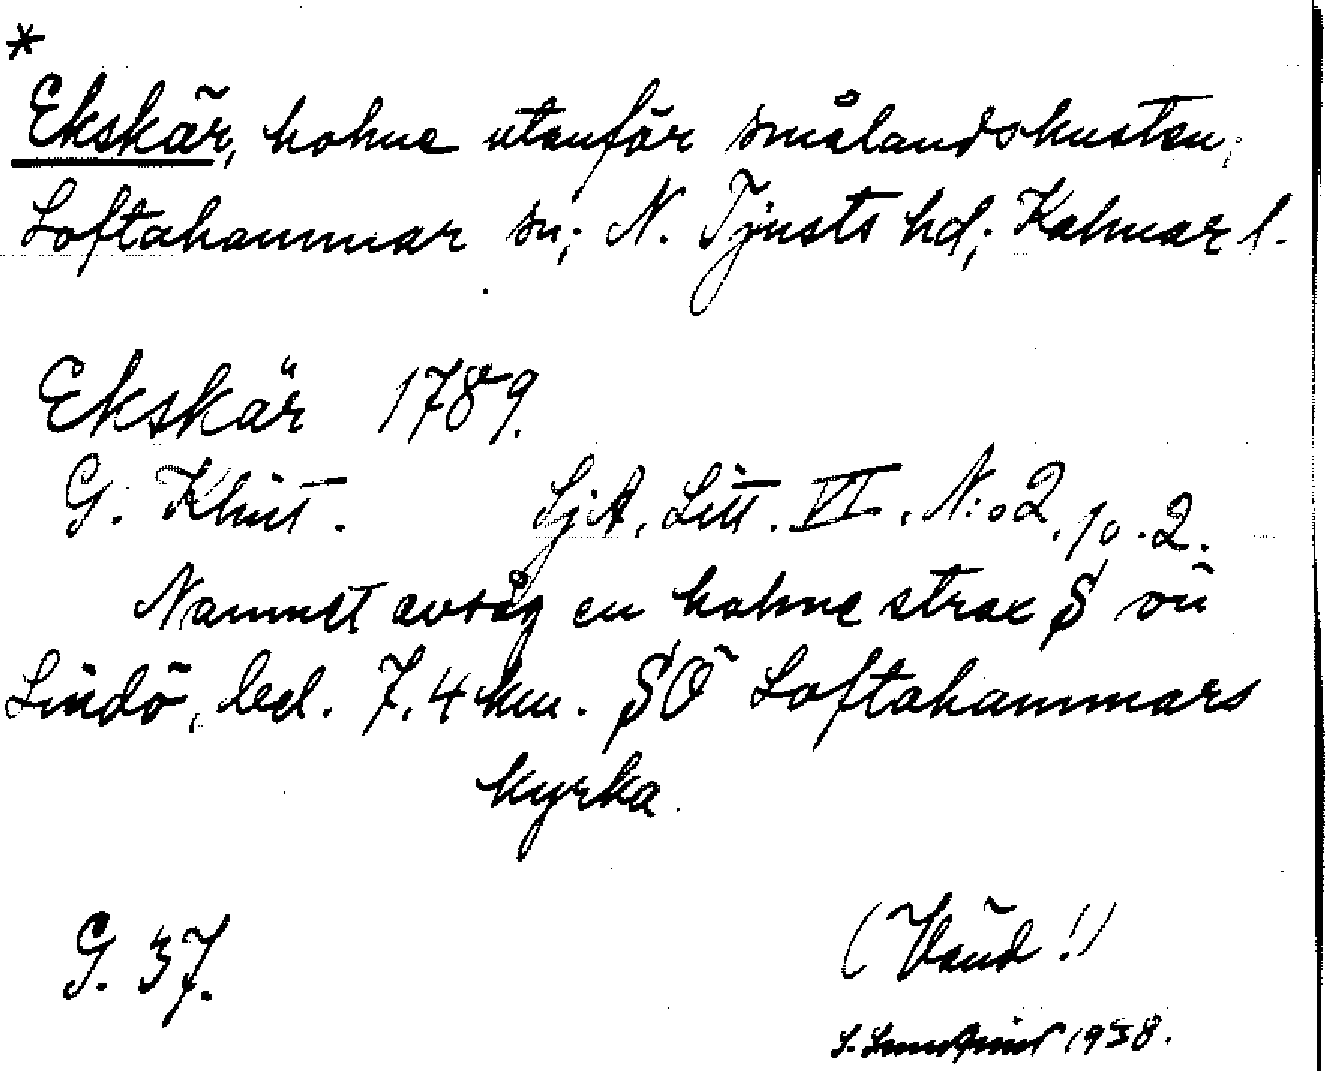 *
Ekskär, holme utanför smålandskusten,
Loftahammar sn; N. Tjusts hd; Kalmar l.
Ekskär 1789.
G. Klint. SjA. Litt. VI. N:o 2, p. 2.
Namnet avsåg en holme strax S om
Lindö, bel. 7,4 km. SÖ Loftahammars
kyrka.
G. 37.
(Vänd!)
1938.